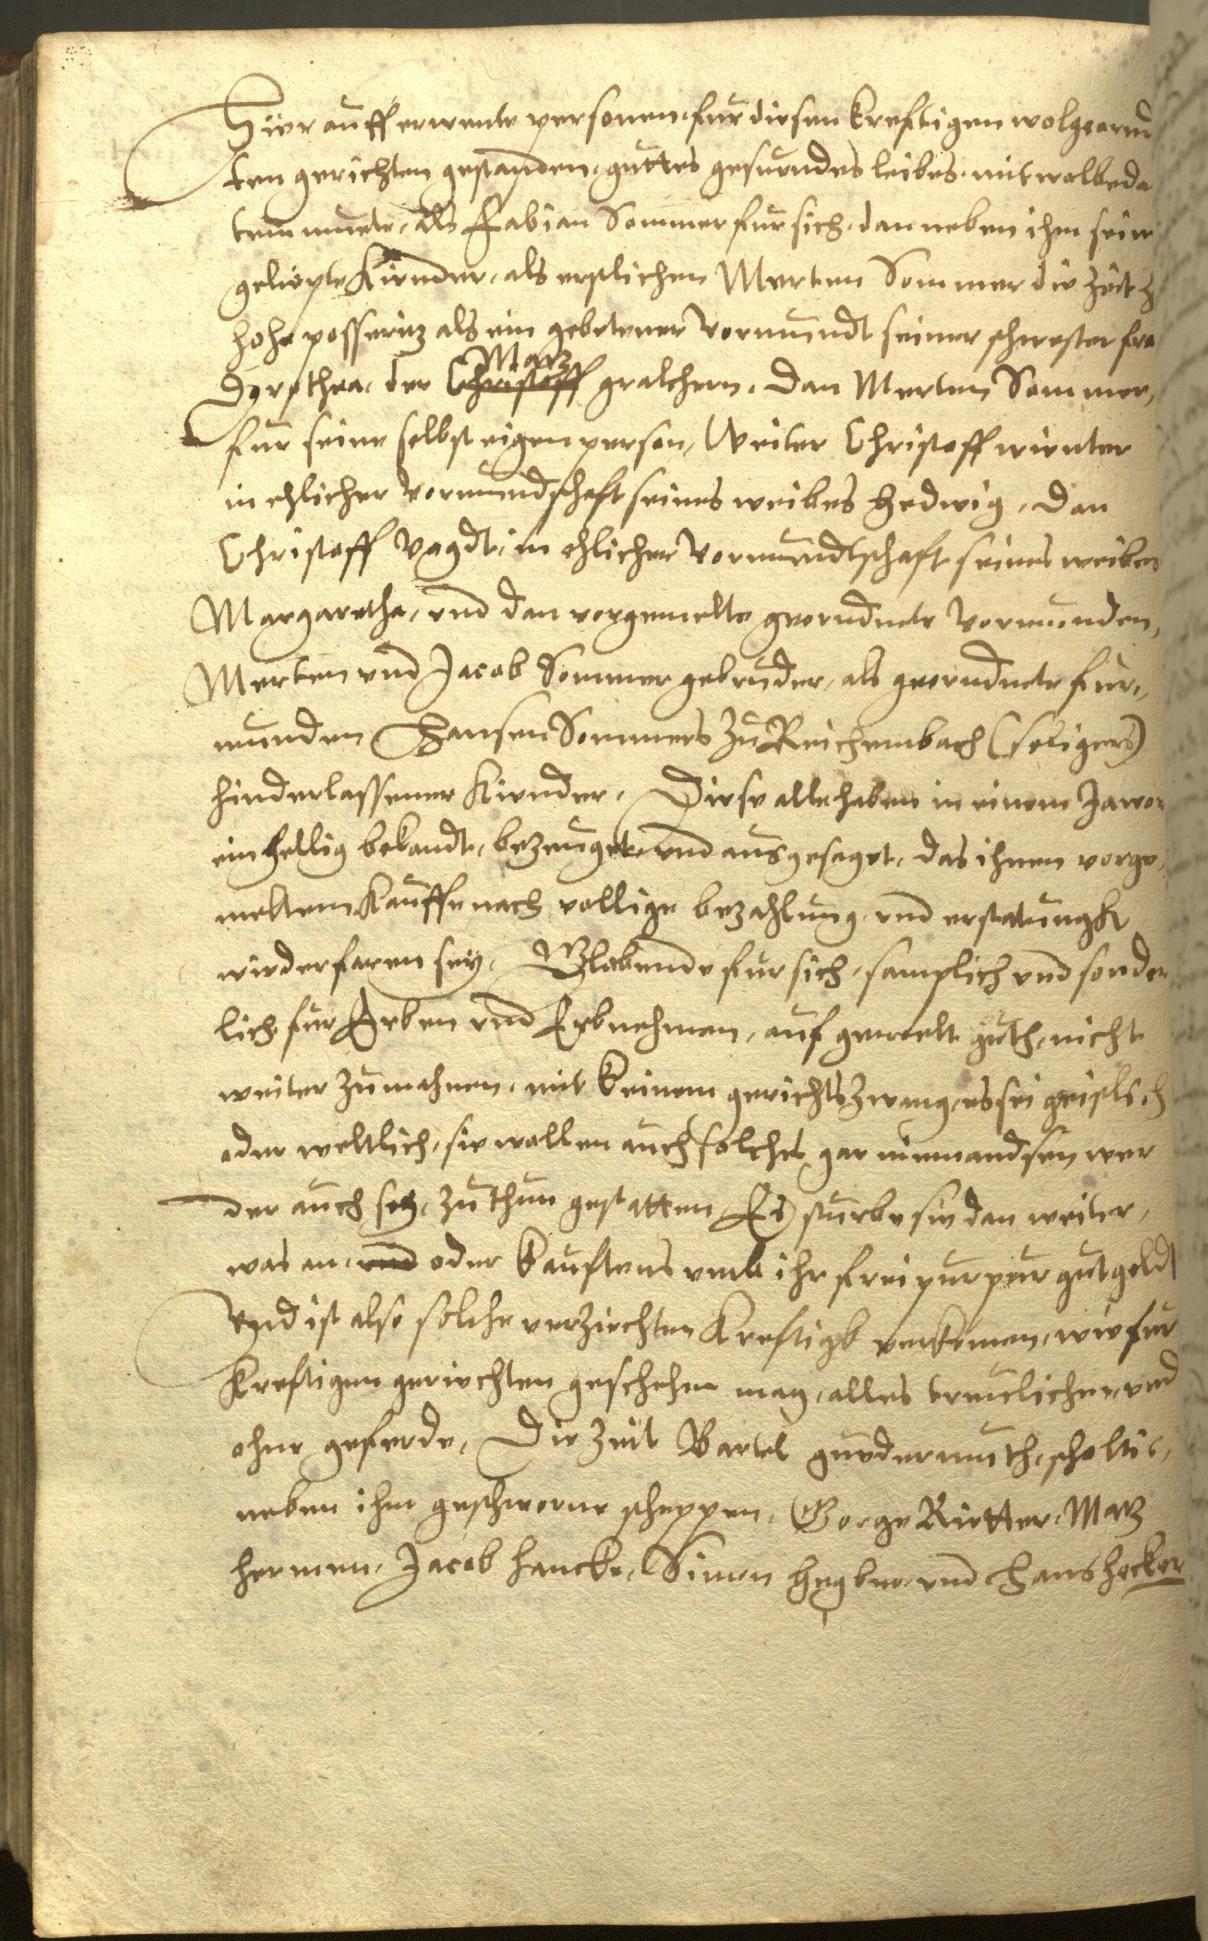 Hierauff erwente personen fur diesen kreftigen wolgeornd
ten gerichten gestanden, guttes gesundes leibes, mit wolbeda
tem muete, als Fabian Sommer fur sich, dan neben ihm sein
geliepte Kinder, als erstlichen Merten Sommer die Zeit Z
hohe posseritz als ein gebetener Vormundt seiner schwester fra
Dorothea, der Christoff Matz gralchern, Dan Merten Sommer,
fur seine selbst eigen person, Weiter Christoff winter
in ehlicher Vormundschaft seines weibes Hedwig, Dan
Christoff Vogdt, in ehlicher Vormundtschaft seines weibes
Margaretha, vnd dan vorgemelte geornduete Vormunden,
Merten vnd Jacob Sommer gebruder, als geornduete fur,
munden Hansen Sommers Zu Reichembach (seligers)
hinderlassener Kinder, Diese alle haben in einem Jawor
einhellig bekandt, bezeuget vnd ausgesaget, das ihnen vorge,
meltem Kauffe nach vollige bezahlung vnd erstatungk
wiederfaren sey, Globende fur sich, samptlich vnd sonder
lich fur Erben vnd Erbnehmen, auf gemelt guth, nicht
weiter zumahnen, mit keinem gerichts Zwang, es sei geistlich
oder weltlich, sie wollen auch solches gar niemandsen, wer
der auch sey, Zuthun gestatten, Es sturbe sie dan weiter,
was an, vnd oder kauftens vmb ihr frei pur pur gutgeldt
Vnd ist also solche verziechten kreftigk vorkomen, wie fur
kreftigen geriechten geschehen mag, alles treulichen vnd
ohne geferde, Die Zeit Bartel gundermuth, scholtis,
neben ihm geschworne scheppen, Gorge Rietter, Matz
herman, Jacob hancke, Simon und Hans hecker